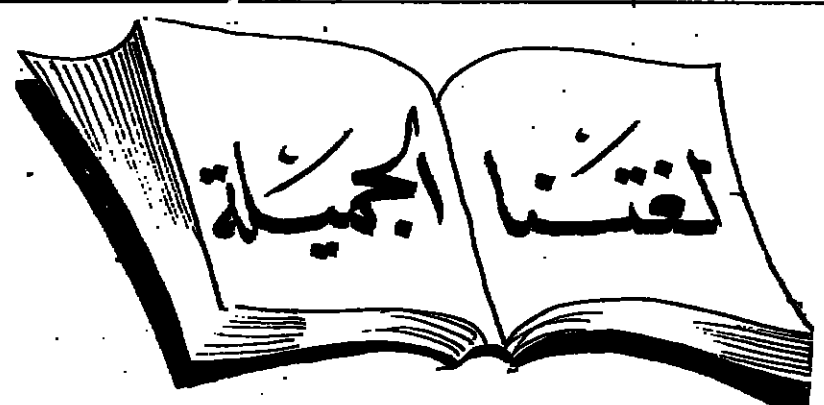 لغتنا الجميلة